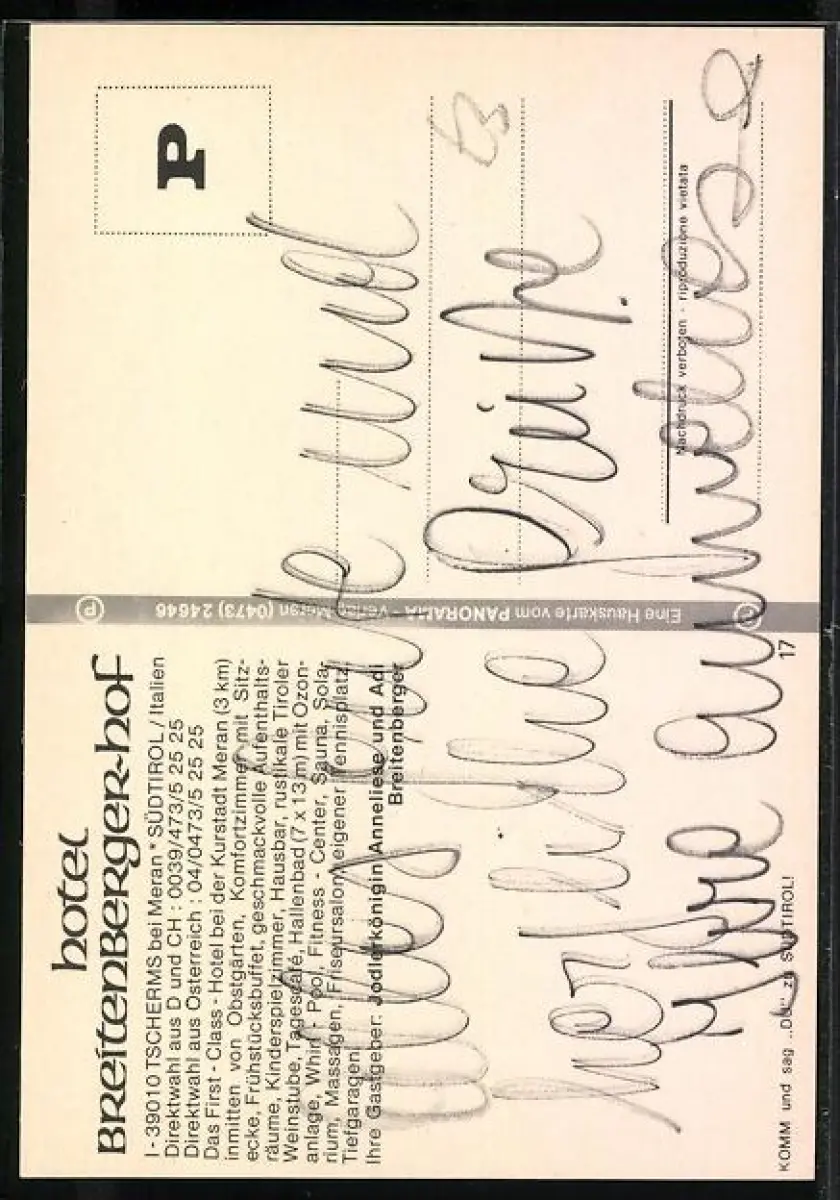 hotel
BREITENBERGER-HOF
I - 39010 TSCHERMS bei Meran * SÜDTIROL / Italien
Direktwahl aus D und CH : 0039/473/5 25 25
Direktwahl aus Österreich : 04/0473/5 25 25
Das First - Class - Hotel bei der Kurstadt Meran (3 km)
inmitten von Obstgärten, Komfortzimmer mit Sitz-
ecke, Frühstücksbuffet, geschmackvolle Aufenthalts-
räume, Kinderspielzimmer, Hausbar, rustikale Tiroler
Weinstube, Tagescafé, Hallenbad (7 x 13 m) mit Ozon-
anlage, Whirl - Pool, Fitness - Center, Sauna, Sola-
rium, Massagen, Friseursalon, eigener Tennisplatz,
Tiefgaragen!
Ihre Gastgeber: Jodlerkönigin Anneliese und Adi
Breitenberger
KOMM und sag „DU" zu SÜDTIROL!
17
Eine Hauskarte vom PANORAMA - Verlag Meran (0473) 24646
P
P
Alles Gute und
herzliche Grüße
Ihre Anneliese
Nachdruck verboten - riproduzione vietata